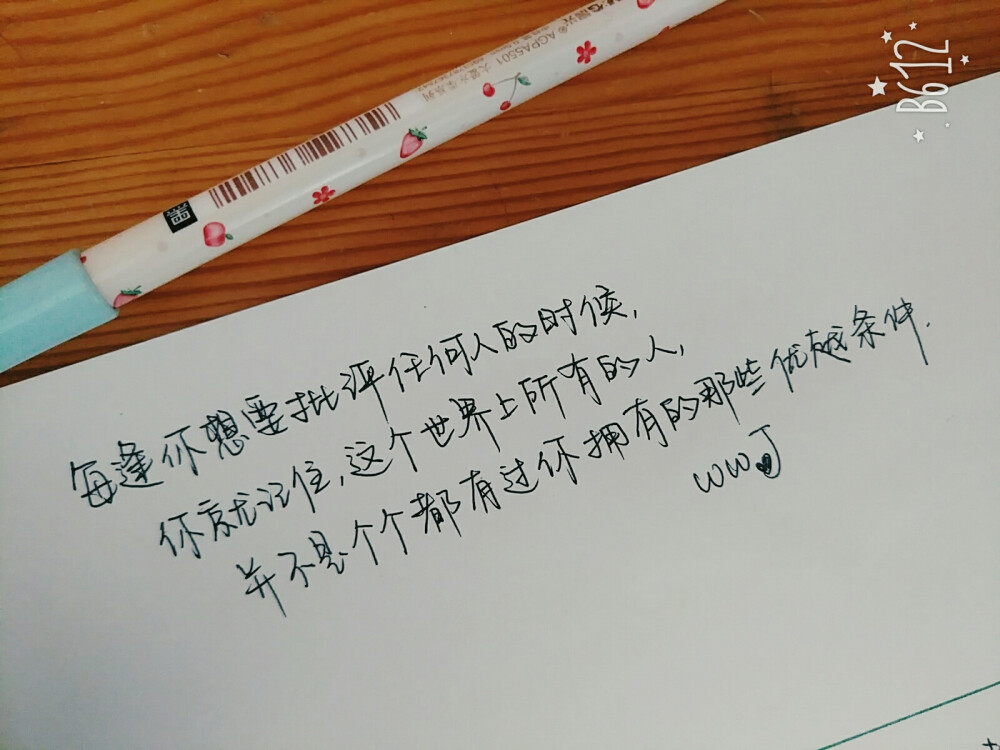 B612
晨光® AGPA5501
每逢你想要批评任何人的时候,
你就记住,这个世界上所有的人,
并不是个个都有过你拥有的那些优越条件.
wwJ